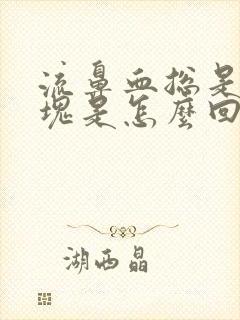 流鼻血总是
塊是怎麼回
湖西晶